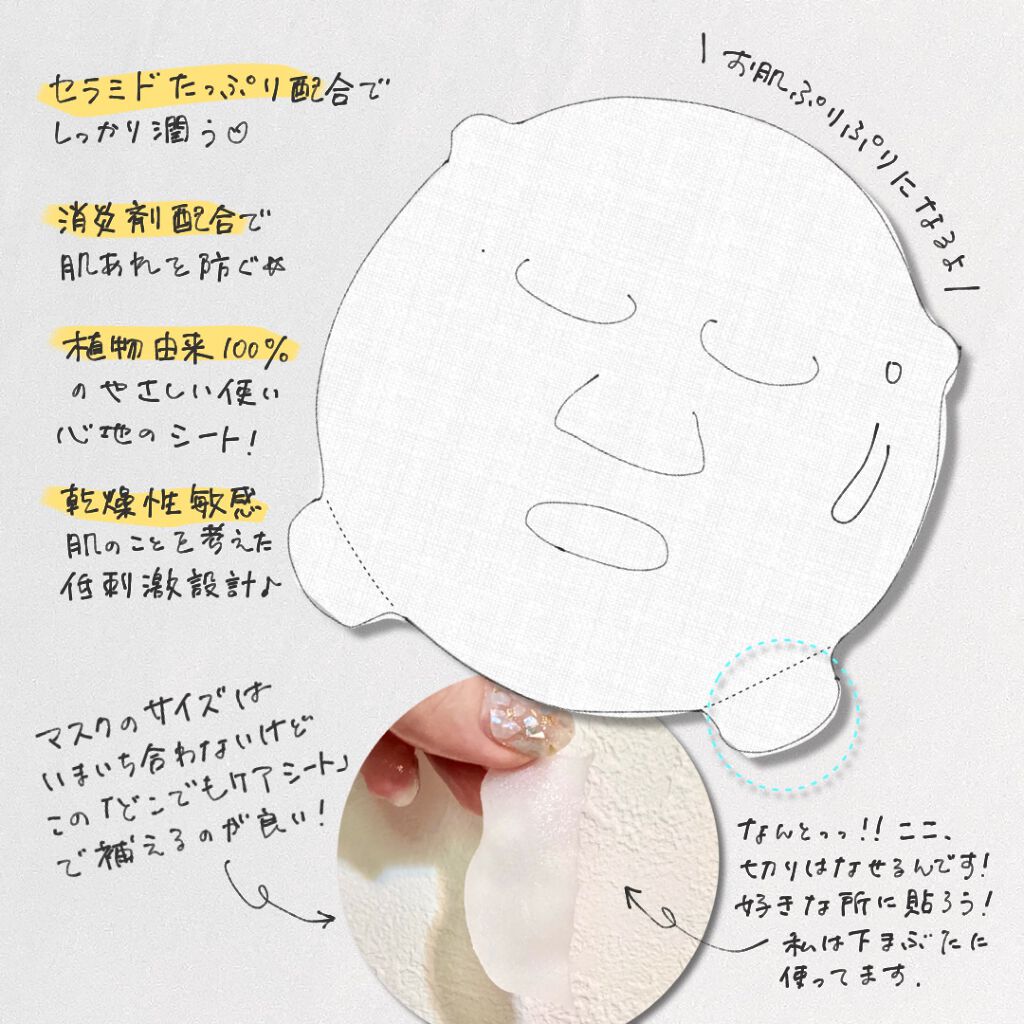 セラミドたっぷり配合で
しっかり潤う♡
消炎剤配合で
肌あれを防ぐ☆
植物由来100%
のやさしい使い
心地のシート!
乾燥性敏感
肌のことを考えた
低刺激設計♪
\お肌ぷりぷりになるよ/
マスクのサイズは
いまいち合わないけど
この「どこでもケアシート」
で補えるのが良い!
なんとっっ!!ココ、
切りはなせるんです!
好きな所に貼ろう!
私は下まぶたに
使ってます.